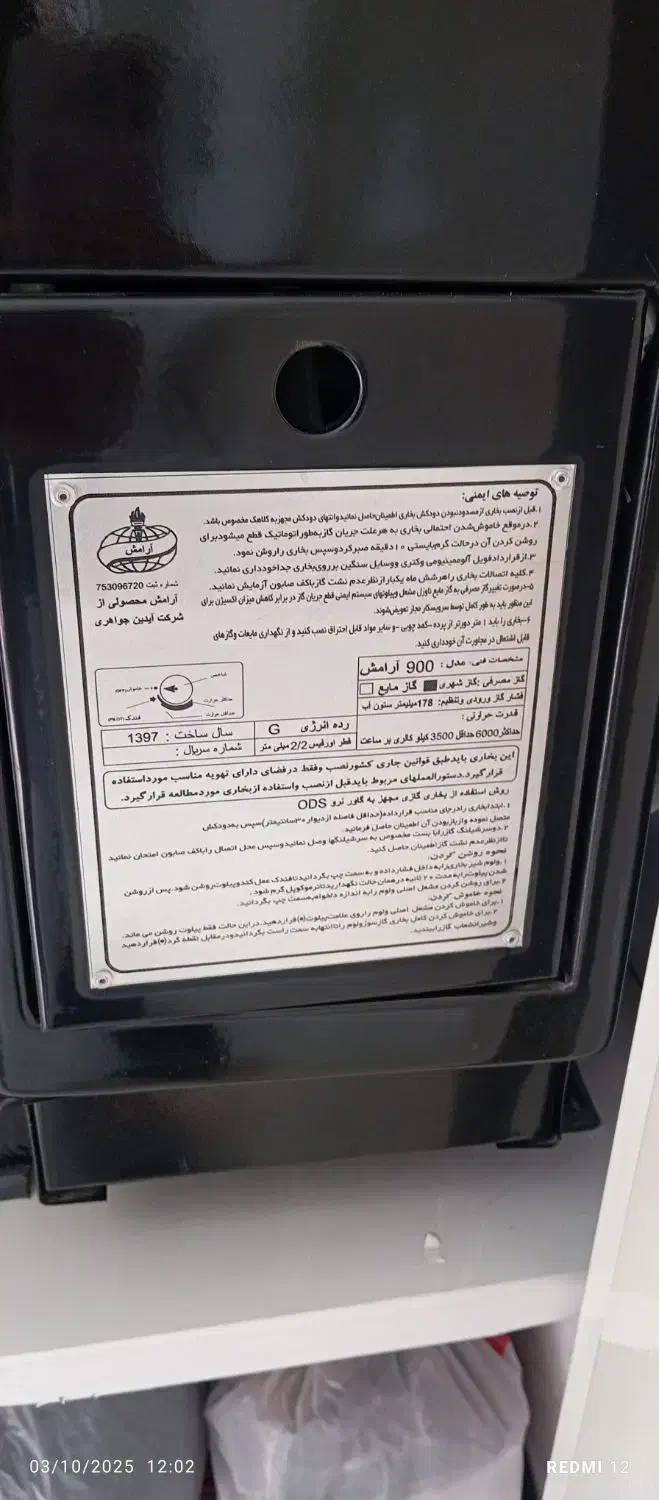 توصیه های ایمنی:
۱.قبل ازنصب بخاری ازمسدودنبودن دودکش بخاری اطمینان‌حاصل نمائیدوانتهای دودکش مجهزبه کلاهک مخصوص باشد.
۲.درموقع خاموش‌شدن احتمالی بخاری به هرعلت جریان گازبه‌طوراتوماتیک قطع میشودبرای
روشن کردن آن درحالت گرم‌بایستی ۱۰دقیقه صبرکردوسپس بخاری راروشن نمود.
۳.ازقراردادفویل آلومینیومی وکتری ووسایل سنگین برروی‌بخاری جداخودداری نمائید.
۴.کلیه اتصالات بخاری راهرشش ماه یکبارازنظرعدم نشت گازباکف صابون آزمایش نمائید.
۵-درصورت تغییرگاز مصرفی به گاز مایع ناوزل مشعل وپیلوتهای سیستم ایمنی قطع جریان گاز در برابر کاهش میزان اکسیژن برای
این منظور باید به طور کامل توسط سرویسکار مجاز تعویض‌شوند.
۶-بخاری را باید ۱ متر دورتر از پرده -کمد چوبی -و سایر مواد قابل احتراق نصب کنید و از نگهداری مایعات وگازهای
قابل اشتعال در مجاورت آن خودداری کنید.
آرامش
شماره ثبت 753096720
آرامش محصولی از
شرکت آیدین جواهری
مشخصات فنی: مدل : 900 آرامش
گاز مصرفی :گاز شهری گاز مایع
فشار گاز ورودی وتنظیم: 178میلیمتر ستون آب
قدرت حرارتی :
حداکثر6000 حداقل 3500 کیلو کالری بر ساعت
شاخص
خاموش(OFF)
حداکثر حرارت
حداقل حرارت
فندک(PILOT)
رده انرژی G
قطر اورفیس 2/2 میلی متر
سال ساخت : 1397
شماره سریال :
این بخاری بایدطبق قوانین جاری کشورنصب وفقط درفضای دارای تهویه مناسب مورداستفاده
قرارگیرد.دستورالعملهای مربوط بایدقبل ازنصب واستفاده ازبخاری موردمطالعه قرارگیرد.
روش استفاده از بخاری گازی مجهز به گاور ترو ODS
۱.ابتدابخاری رادرجای مناسب قرارداده(حداقل فاصله ازدیوار۳۰سانتیمتر)سپس به‌دودکش
متصل نموده وازبازبودن آن اطمینان حاصل فرمائید.
۲.دوسرشیلنگ گازرابا بست مخصوص به سرشیلنگها وصل نمائیدوسپس محل اتصال راباکف صابون امتحان نمائید
تاازنظرعدم نشت گازاطمینان حاصل کنید.
نحوه روشن کردن:
۱.ولوم شیر بخاری‌رابه داخل فشارداده و به سمت چپ بگردانیدتافندک عمل کندوپیلوت‌روشن شود.پس ازروشن
شدن پیلوت‌رابه مدت ۲۰ ثانیه درهمان حالت نگهداریدتاترموکوپل گرم شود.
۲.برای روشن کردن مشعل اصلی ولوم رابه اندازه دلخواه‌به‌سمت چپ بگردانید.
نحوه خاموش کردن:
۱.برای خاموش کردن مشعل اصلی ولوم راروی علامت‌پیلوت(*)قراردهید.دراین حالت فقط پیلوت روشن می ماند.
۲.برای خاموش کردن کامل بخاری گازسوزولوم راتاانتهابه سمت راست بگردانیدودرمقابل نقطه گرد(●)قراردهید
وشیرانشعاب گازراببندید.
03/10/2025 12:02
REDMI 12